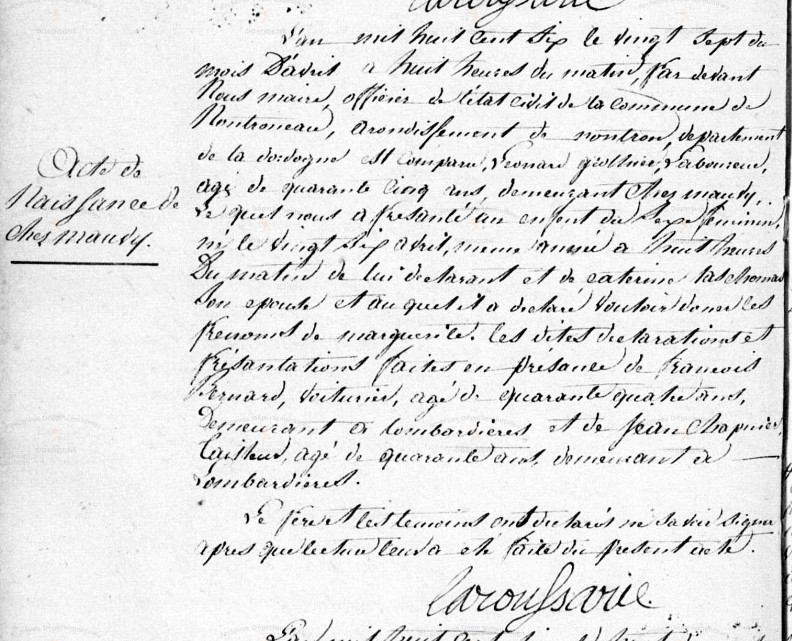 L'an mil huit cent six le vingt sept du
mois D'avril a huit heures du matin, par devant
Nous maire, officier de l'état civil de la commune de
Nontroneau, arondissement de nontron, departement
de la dordogne est comparu, Léonard Laboureur,
agé de quarante cinq ans, demeurant chez mandy,
Le quel nous a présanté un enfent du sexe féminin,
né le vingt six avril, meme année a huit heures
Du matin de lui declarant et de caterine laschomas
son epouse et au quel il a declaré vouloir doner les
prenoms de marguerite. les dites declarations et
Présantations faites en présance de francois
Bernard, voiturier, agé de quarante quatre ans,
Demeurant a lombardieres et de Jean Chapuier,
tailleur, agé de quarante ans, demeurant a
Lombardieres.
Acte de
Naissance de
chez mandy.
Le pere et les temoins ont declarés ne savoir signer
apres que lecture leur a eté faite du present acte.
Laroussarie